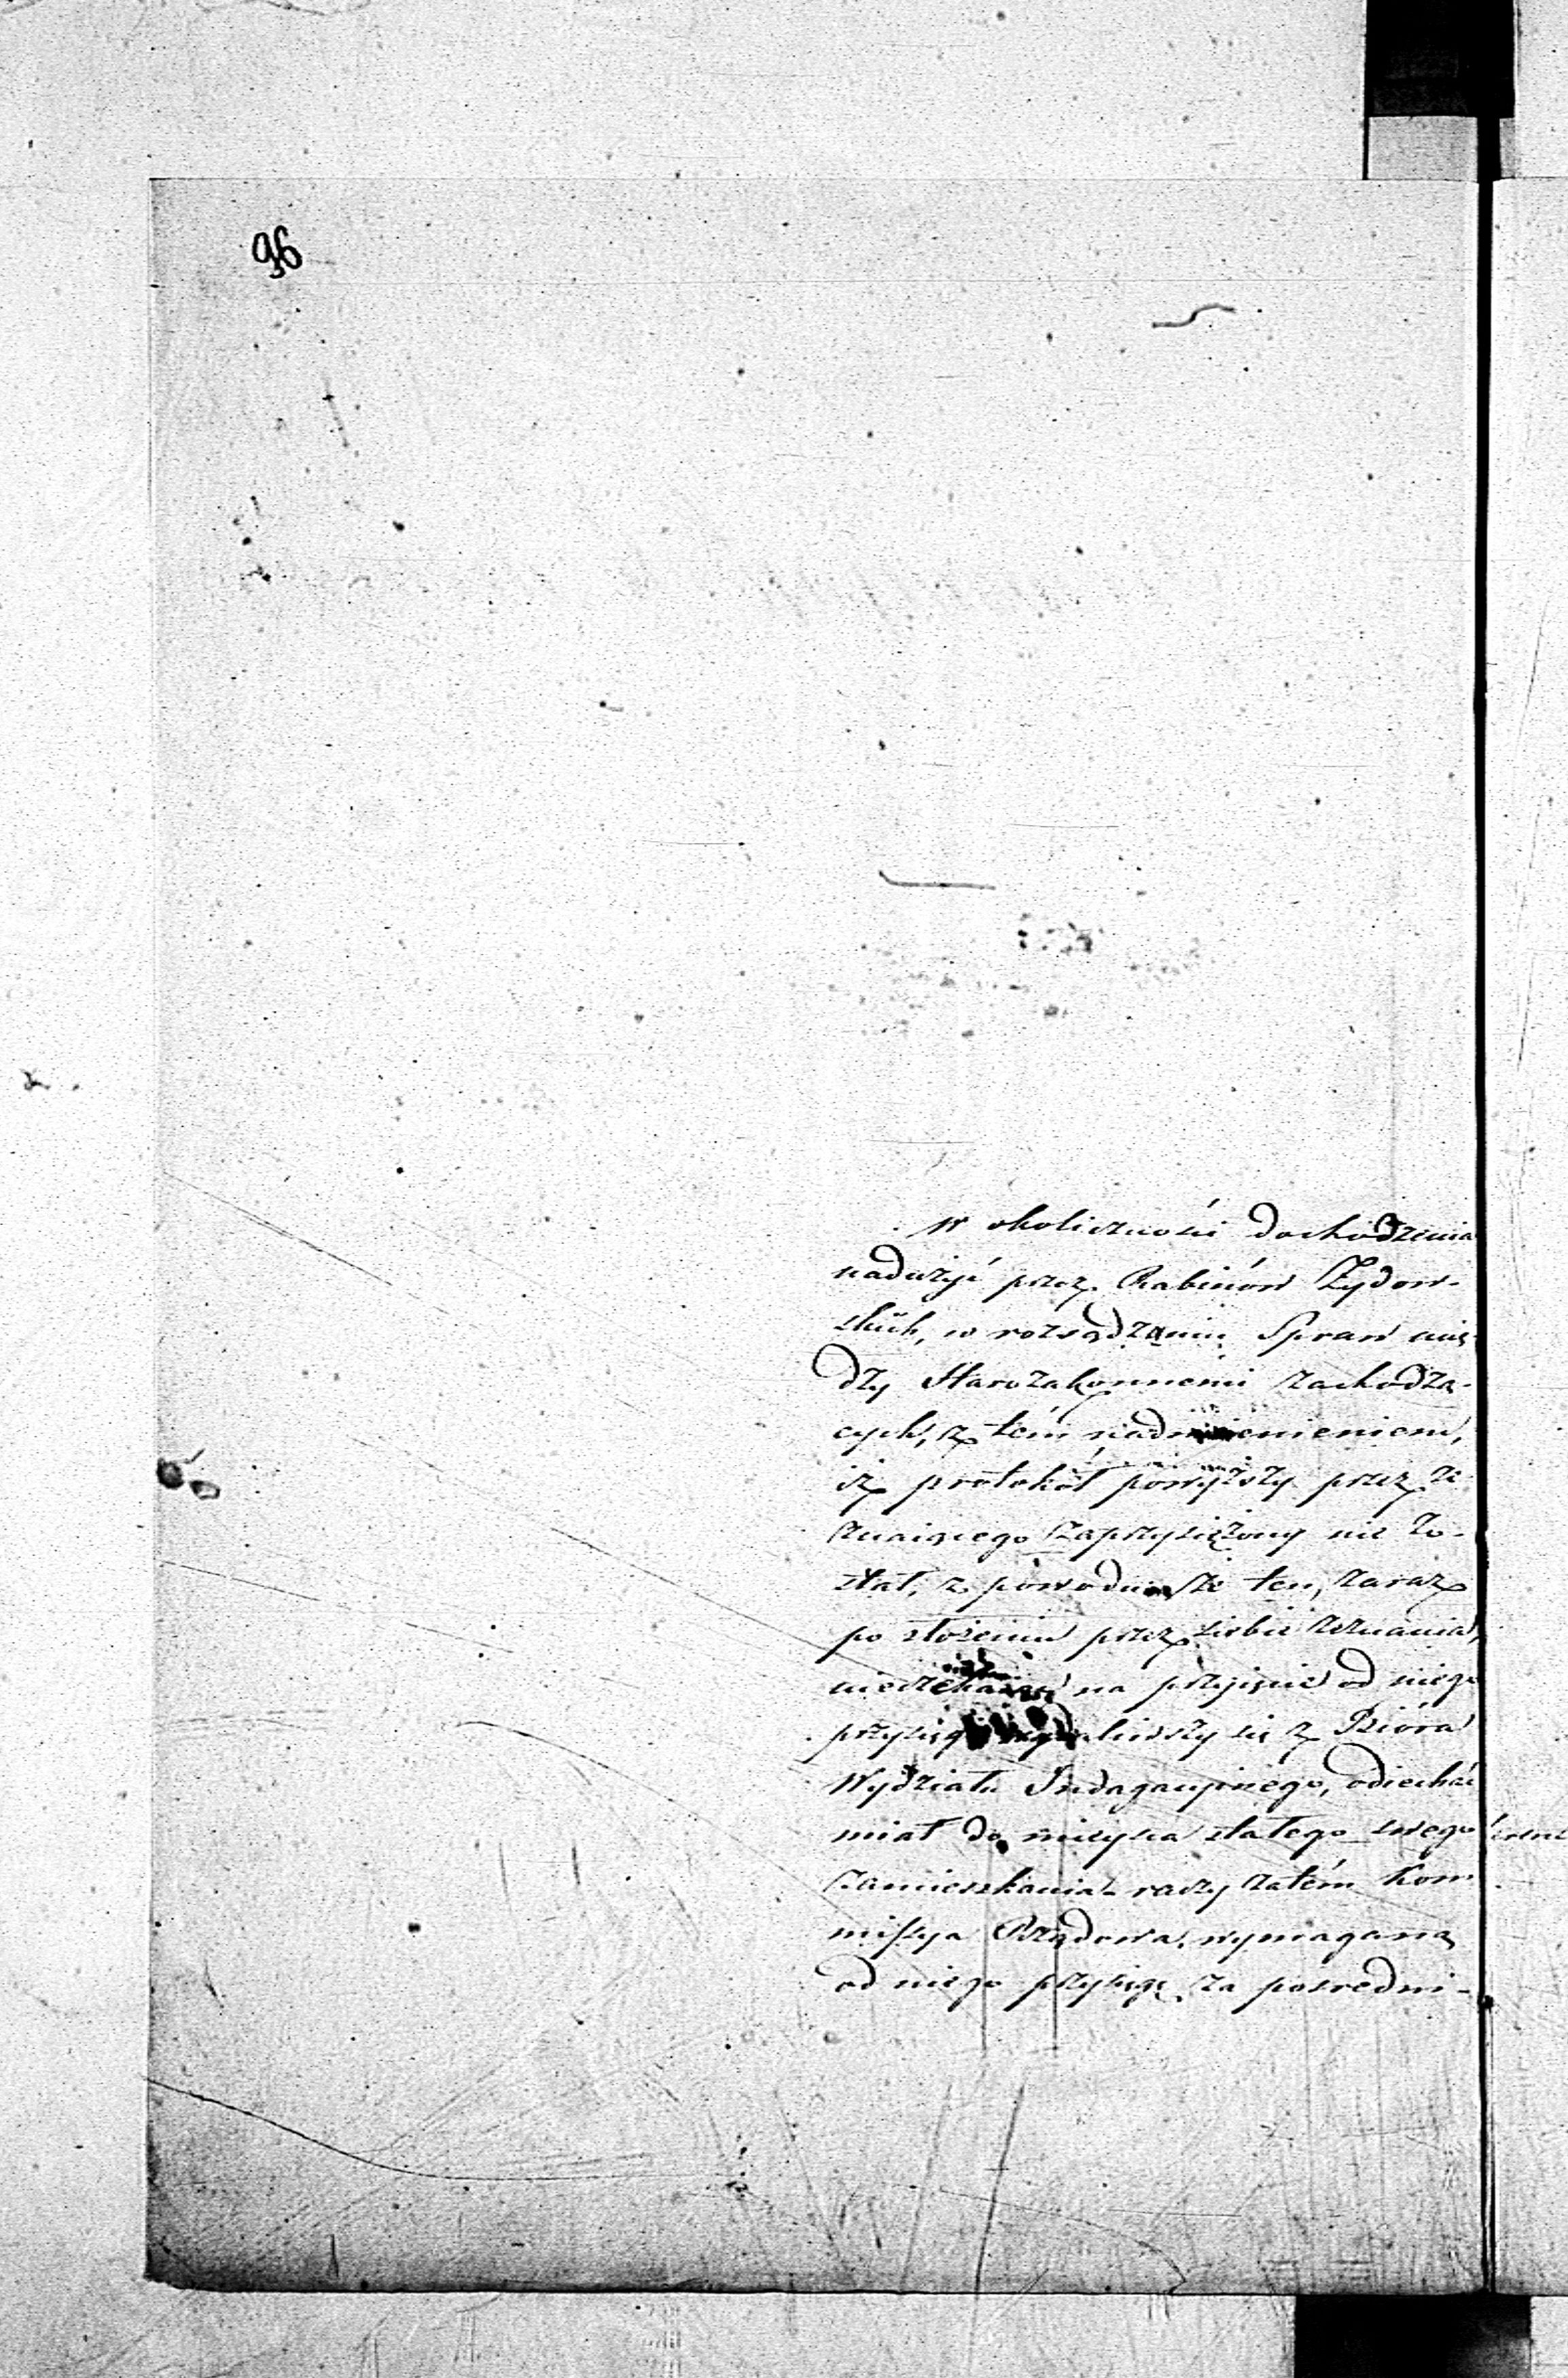 96
W okoliczności dochodzenia
nadużyć przez Rabinów Żydow-
skich, w rozsądzaniu Spraw mię-
dzy Starozakonnemi zachodzą-
cych, z tém nadmienieniem,
iż protokół powyższy przez ze
znaiącego zaprzysiężony nie zo-
stał, z powodu że ten, zaraz
po złożeniu przez siebie zeznania,
nieczekaiąc na przyięcie od niego
przysięgi się z Bióra
Wydziału Indagacyinego, odiechać
miał do mieysca stałego swego
zamieszkania raczy zatém Kom-
missya Rządowa, wymaganą
od niego przysięgę za pośredni-